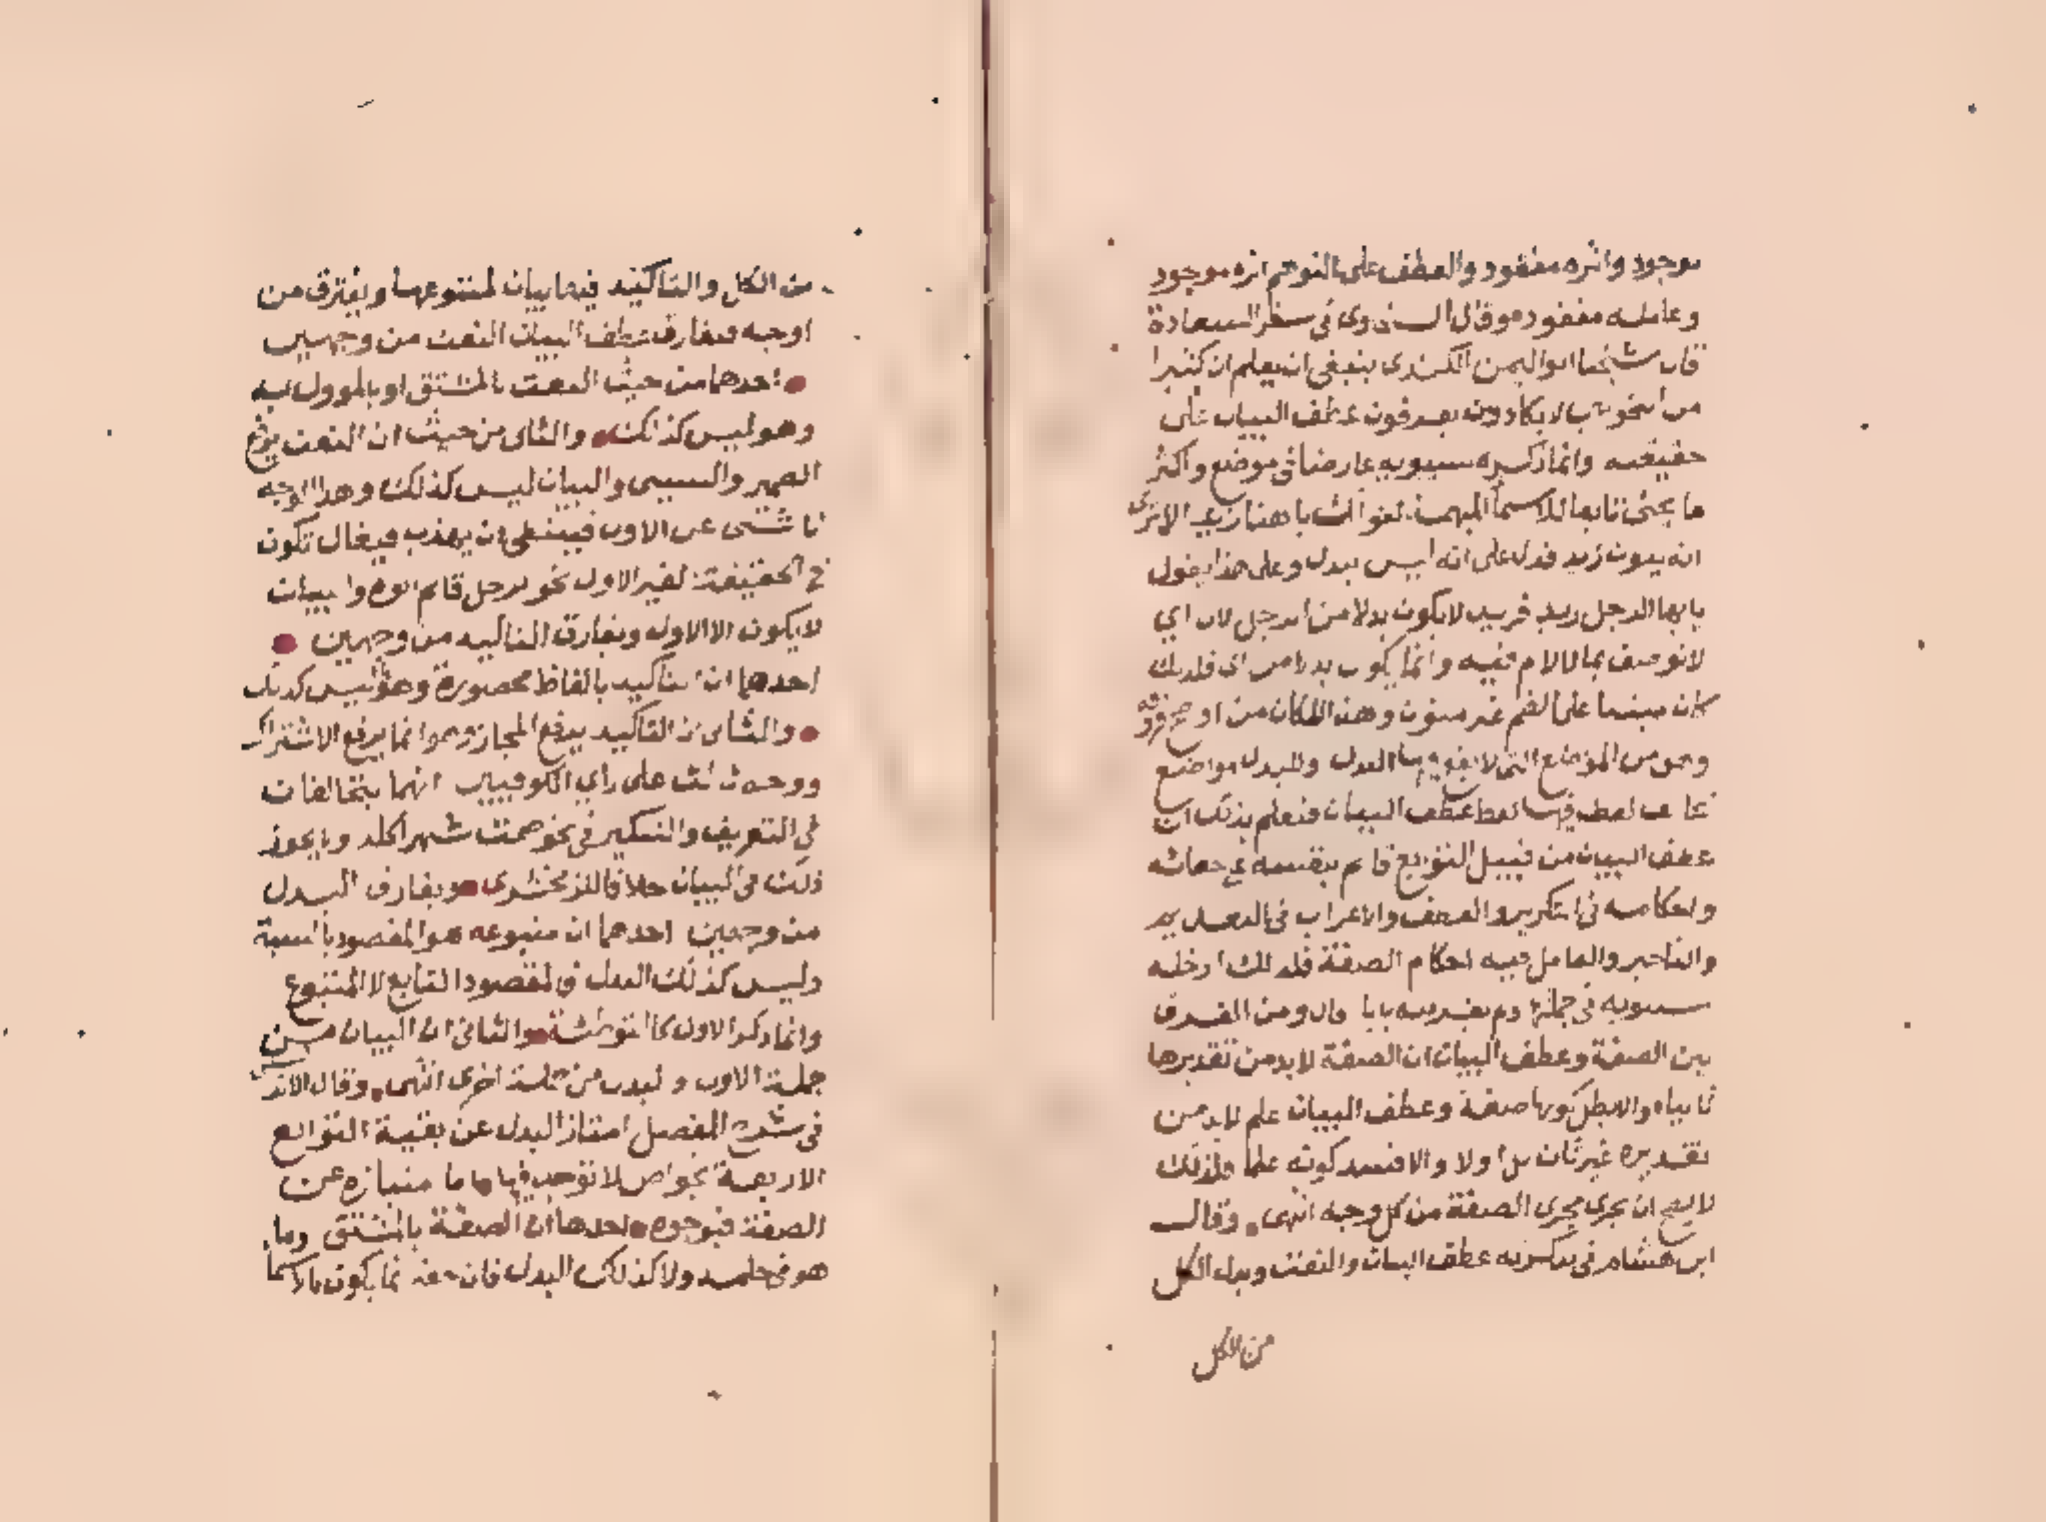 موجود واثره مفقود والعطف على التوهم اثره موجود
وعامله مفقود وقال السخاوى فى سفر السعادة
قال شيخنا ابو اليمن الكندى ينبغى ان يعلم ان كثيرا
من النحويين لا يكادون يعرفون عطف البيان على
حقيقته وانما ذكره سيبويه عارضا فى موضع واكثر
ما يجئ تابعا للاسما المبهمة لقولك يا هذا زيد الا ترى
انه ينون زيد فدل على انه ليس ببدل وعلى هذا يقول
يا يها الرجل زيد فزيد لا يكون بدلا من الرجل لان اي
لا توصف بما لا لام فيه وانما يكون بدلا من اى فلذلك
كان مبنيا على الضم غير منون وهذا المكان من اوضح فروقه
وهو من المواضع التى لا يقع فيها البدل وللبدل مواضع
يخالف لفظه فيها لفظ عطف البيان فتعلم بذلك ان
عطف البيان من قبيل التوابع قائم بنفسه على حياله
واحكامه فى التكرير والعطف والاعراب فى التقديم
والتاخير والعامل فيه احكام الصفة فلذلك ادخله
سيبويه فى جملتها ولم يفرد له بابا قال ومن الفرق
بين الصفة وعطف البيان ان الصفة لا بد من تقديرها
ثانياه والا بطل كونها صفة وعطف البيان علم لا بد من
تقديره غير ثان بل اولا والا فسد كونه علما فلذلك
لا يصح ان يجرى مجرى الصفة من كل وجه انتهى وقال
ابن هشام فى تذكرته عطف البيان والنعت وبدل الكل
من الكل
من الكل والتاكيد فيها بيان لمتبوعها ويفترق من
اوجه فيفارق عطف البيان النعت من وجهين
احدهما من حيث النعت بالمشتق او بالموول به
وهو ليس كذلك والثانى من حيث ان النعت يرفع
الضمير والسببى والبيان ليس كذلك وهذا الوجه
ناشئ عن الاول فينبغى ان يهذب فيقال تكون
فى الحقيقة لغير الاول نحو برجل قائم ابوه والبيان
لا يكون الا الاول ويفارق التاكيد من وجهين
احدهما ان التاكيد بالفاظ محصورة وهو ليس كذلك
والثانى ان التاكيد يرفع المجاز وهو انما يرفع الاشتراك
ووجه ثالث على راي الكوفيين انهما يتخالفان
فى التعريف والتنكير فى نحو صمت شهرا كله ولا يجوز
ذلك فى البيان خلافا للزمخشرى ويفارق البدل
من وجهين احدهما ان متبوعه هو المقصود بالنسبة
وليس كذلك البدل فالمقصود التابع لا المتبوع
وانما ذكر الاول كالتوطئة والثانى ان البيان من
جملة الاول والبدل من جملة اخرى انتهى وقال
فى شرح المفصل امتاز البدل عن بقية التوابع
الاربعة بخواص لا توجد فيها اما امتيازه عن
الصفة فبوجوه احدها ان الصفة بالمشتق وما
هو فى حكمه ولا كذلك البدل فان حقه انما يكون بالاسما